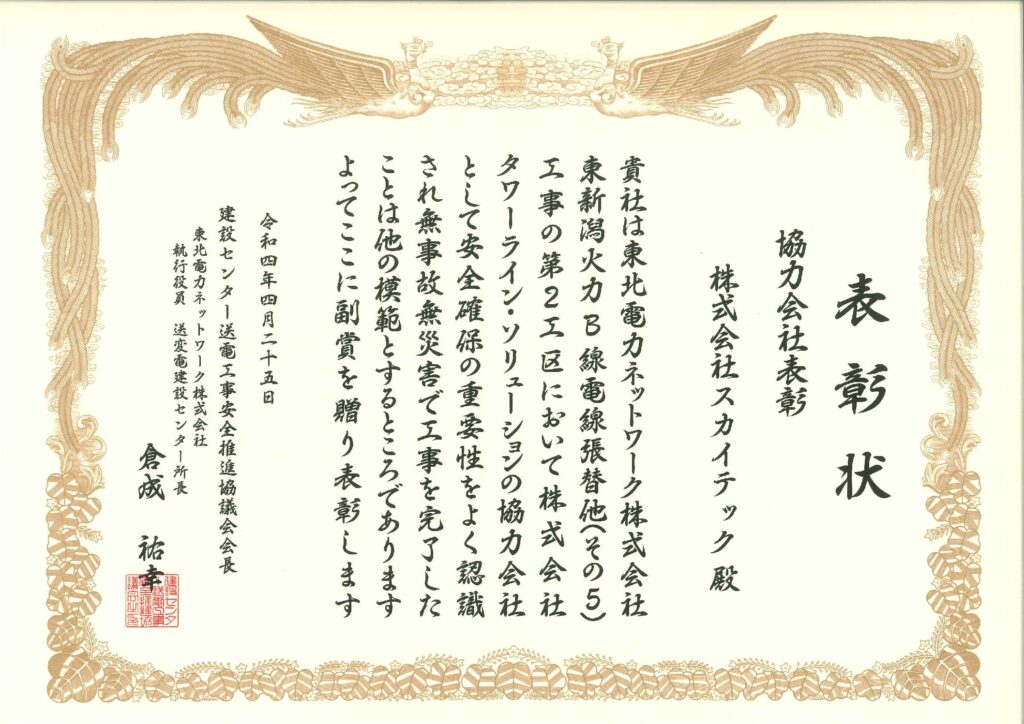 表彰状
協力会社表彰
株式会社スカイテック 殿
貴社は東北電力ネットワーク株式会社
東新潟火力B線電線張替他(その5)
工事の第2工区において株式会社
タワーライン・ソリューションの協力会社
として安全確保の重要性をよく認識
され無事故無災害で工事を完了した
ことは他の模範とするところであります
よってここに副賞を贈り表彰します
令和四年四月二十五日
建設センター送電工事安全推進協議会会長
東北電力ネットワーク株式会社
執行役員 送変電建設センター所長
倉成 祐幸